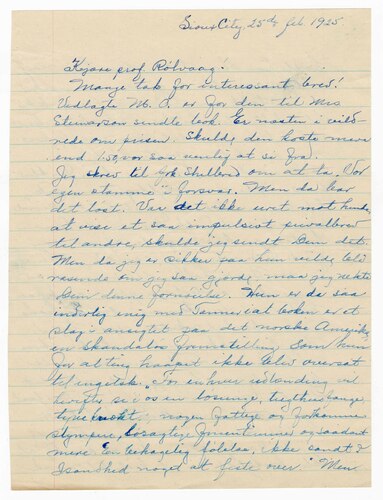 Sioux City, 25de feb 1925
Kjære prof. Rölvaag!
Mange tak for interessant brev!
Vedlagte M. O. er for den til Mrs
sendte bok. Er næsten i vild-
rede om prisen. Skulde den koste mere
end 1.50, vær saa venlig at si fra.
Jeg skrev til om at ta "Vor
egen stamme" i forsvar. Men da har
det lost. Var det ikke uret mot hende,
at vise et saa impulsivt privatbrev
til andre, skulde jeg sendt Dem det.
Men da jeg er sikker paa hun vilde bli
rasende om jeg saa gjorde maa jeg nekte
Dem denne fornøielse. Hun er da saa
inderlig enig med at boken er et
slag i ansigtet paa det norske Amerika,
en skandaløs fremstilling som hun
for alting haaber ikke blir oversat
til engelsk. "For enhver utlænding vil
se i os en losunge,
nogen fattige og forkomne
og saadant
mere. En behagelig følelse, ikke sandt?
I sandhed noget at over." Men